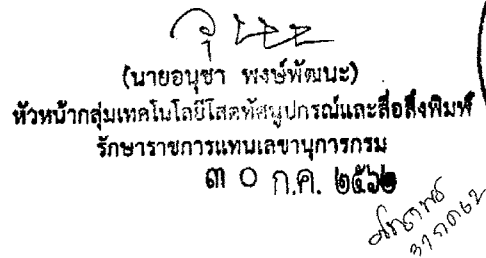 (นายอนุชา พงษ์พัฒนะ)
หัวหน้ากลุ่มเทคโนโลยีโสตทัศนูปกรณ์และสื่อสิ่งพิมพ์
รักษาราชการแทนเลขานุการกรม
๓๐ ก.ค. ๒๕๖๒